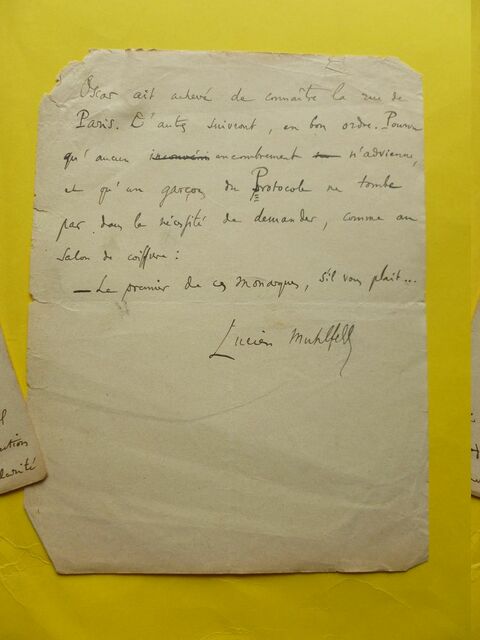 Oscar ait achevé de connaître la rue de
Paris. D'autres suivront, en bon ordre. Pourvu
qu'aucun encombrement n'advienne,
et qu'un garçon du Protocole ne tombe
pas dans la nécessité de demander, comme au
salon de coiffure :
— Le premier de ces monarques, s'il vous plaît...
Lucien Muhlfeld